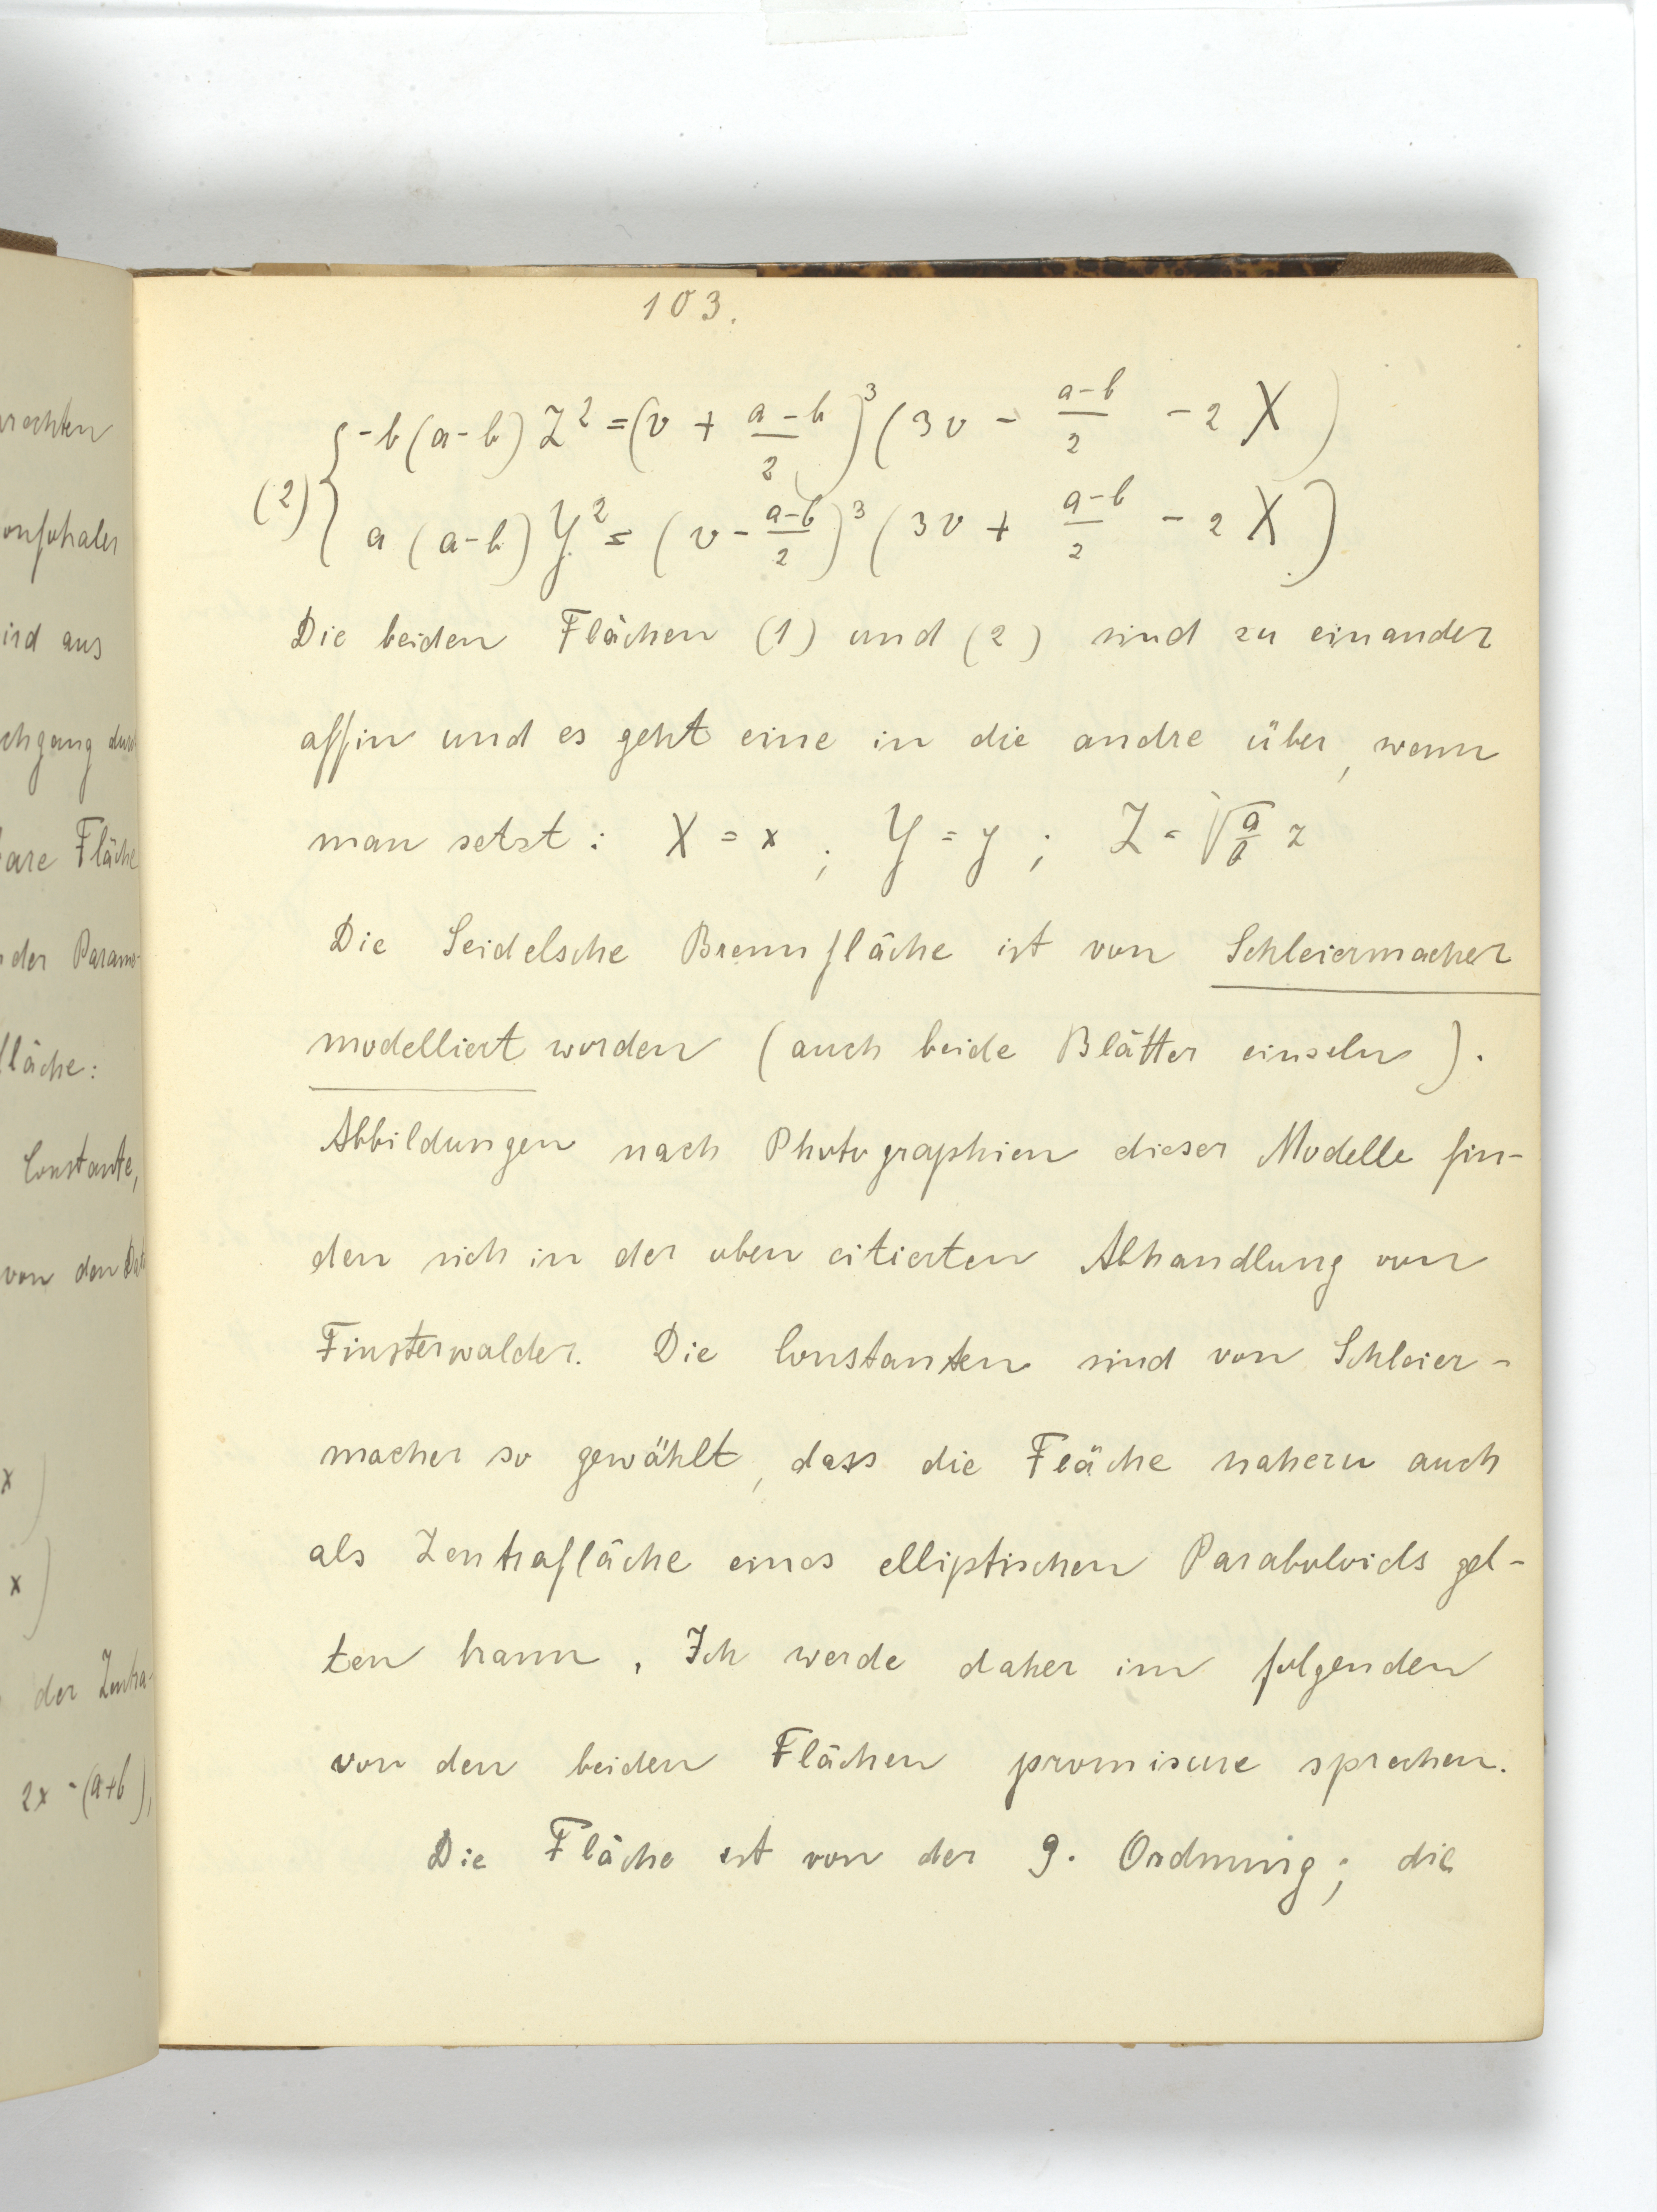 rechten
onfokaler
ird aus
chgang durch
bare Fläche
der Parame-
fläche:
Constante,
von den
x )
x )
der Zentra-
2x - (a+b),
103.
(2) { -b(a-b) Z² = (v + \frac{a-b}{2})³ (3v - \frac{a-b}{2} - 2X)
a(a-b) Y² = (v - \frac{a-b}{2})³ (3v + \frac{a-b}{2} - 2X)
Die beiden Flächen (1) und (2) sind zu einander
affin und es geht eine in die andre über, wenn
man setzt: X = x ; Y = y ; Z = \sqrt{\frac{a}{b}} z
Die Seidelsche Brennfläche ist von Schleiermacher
modelliert worden (auch beide Blätter einzeln).
Abbildungen nach Photographien dieser Modelle fin-
den sich in der oben citierten Abhandlung von
Finsterwalder. Die Constanten sind von Schleier-
macher so gewählt, dass die Fläche nahezu auch
als Zentrafläche eines elliptischen Paraboloids gel-
ten kann. Ich werde daher im folgenden
von den beiden Flächen promiscue sprechen.
Die Fläche ist von der 9. Ordnung; die